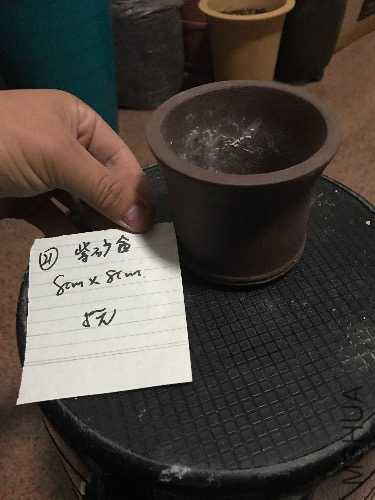 ㉑ 紫砂盆
8cm x 8cm
5元
MSHUA